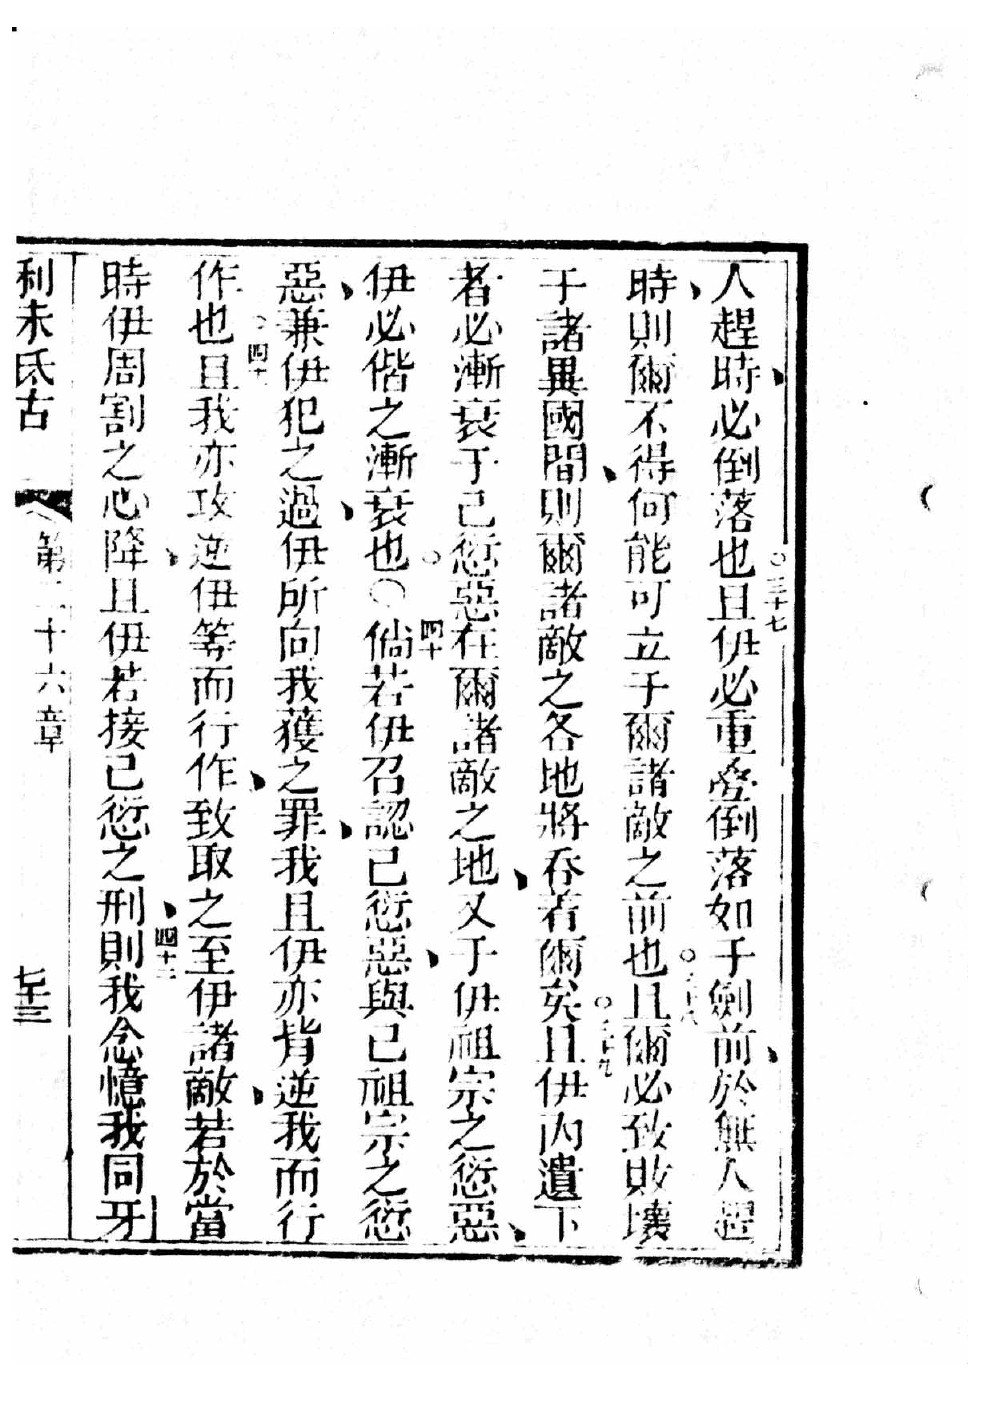 人趕時必倒落也且伊必重疊倒落如于劍前於無人趕
三十七
時則爾不得何能可立于爾諸敵之前也且爾必致敗壞
三十八
于諸異國間則爾諸敵之各地將吞着爾矣且伊內遺下
三十九
者必漸衰于己愆惡在爾諸敵之地又于伊祖宗之愆惡
伊必偕之漸衰也〇倘若伊召認己愆惡與己祖宗之愆
四十
惡兼伊犯之過伊所向我獲之罪我且伊亦背逆我而行
作也且我亦攻逆伊等而行作致取之至伊諸敵若於當
四十
時伊周割之心降且伊若接己愆之刑則我念憶我同牙
四十二
利未氏古
第二十六章
七十三